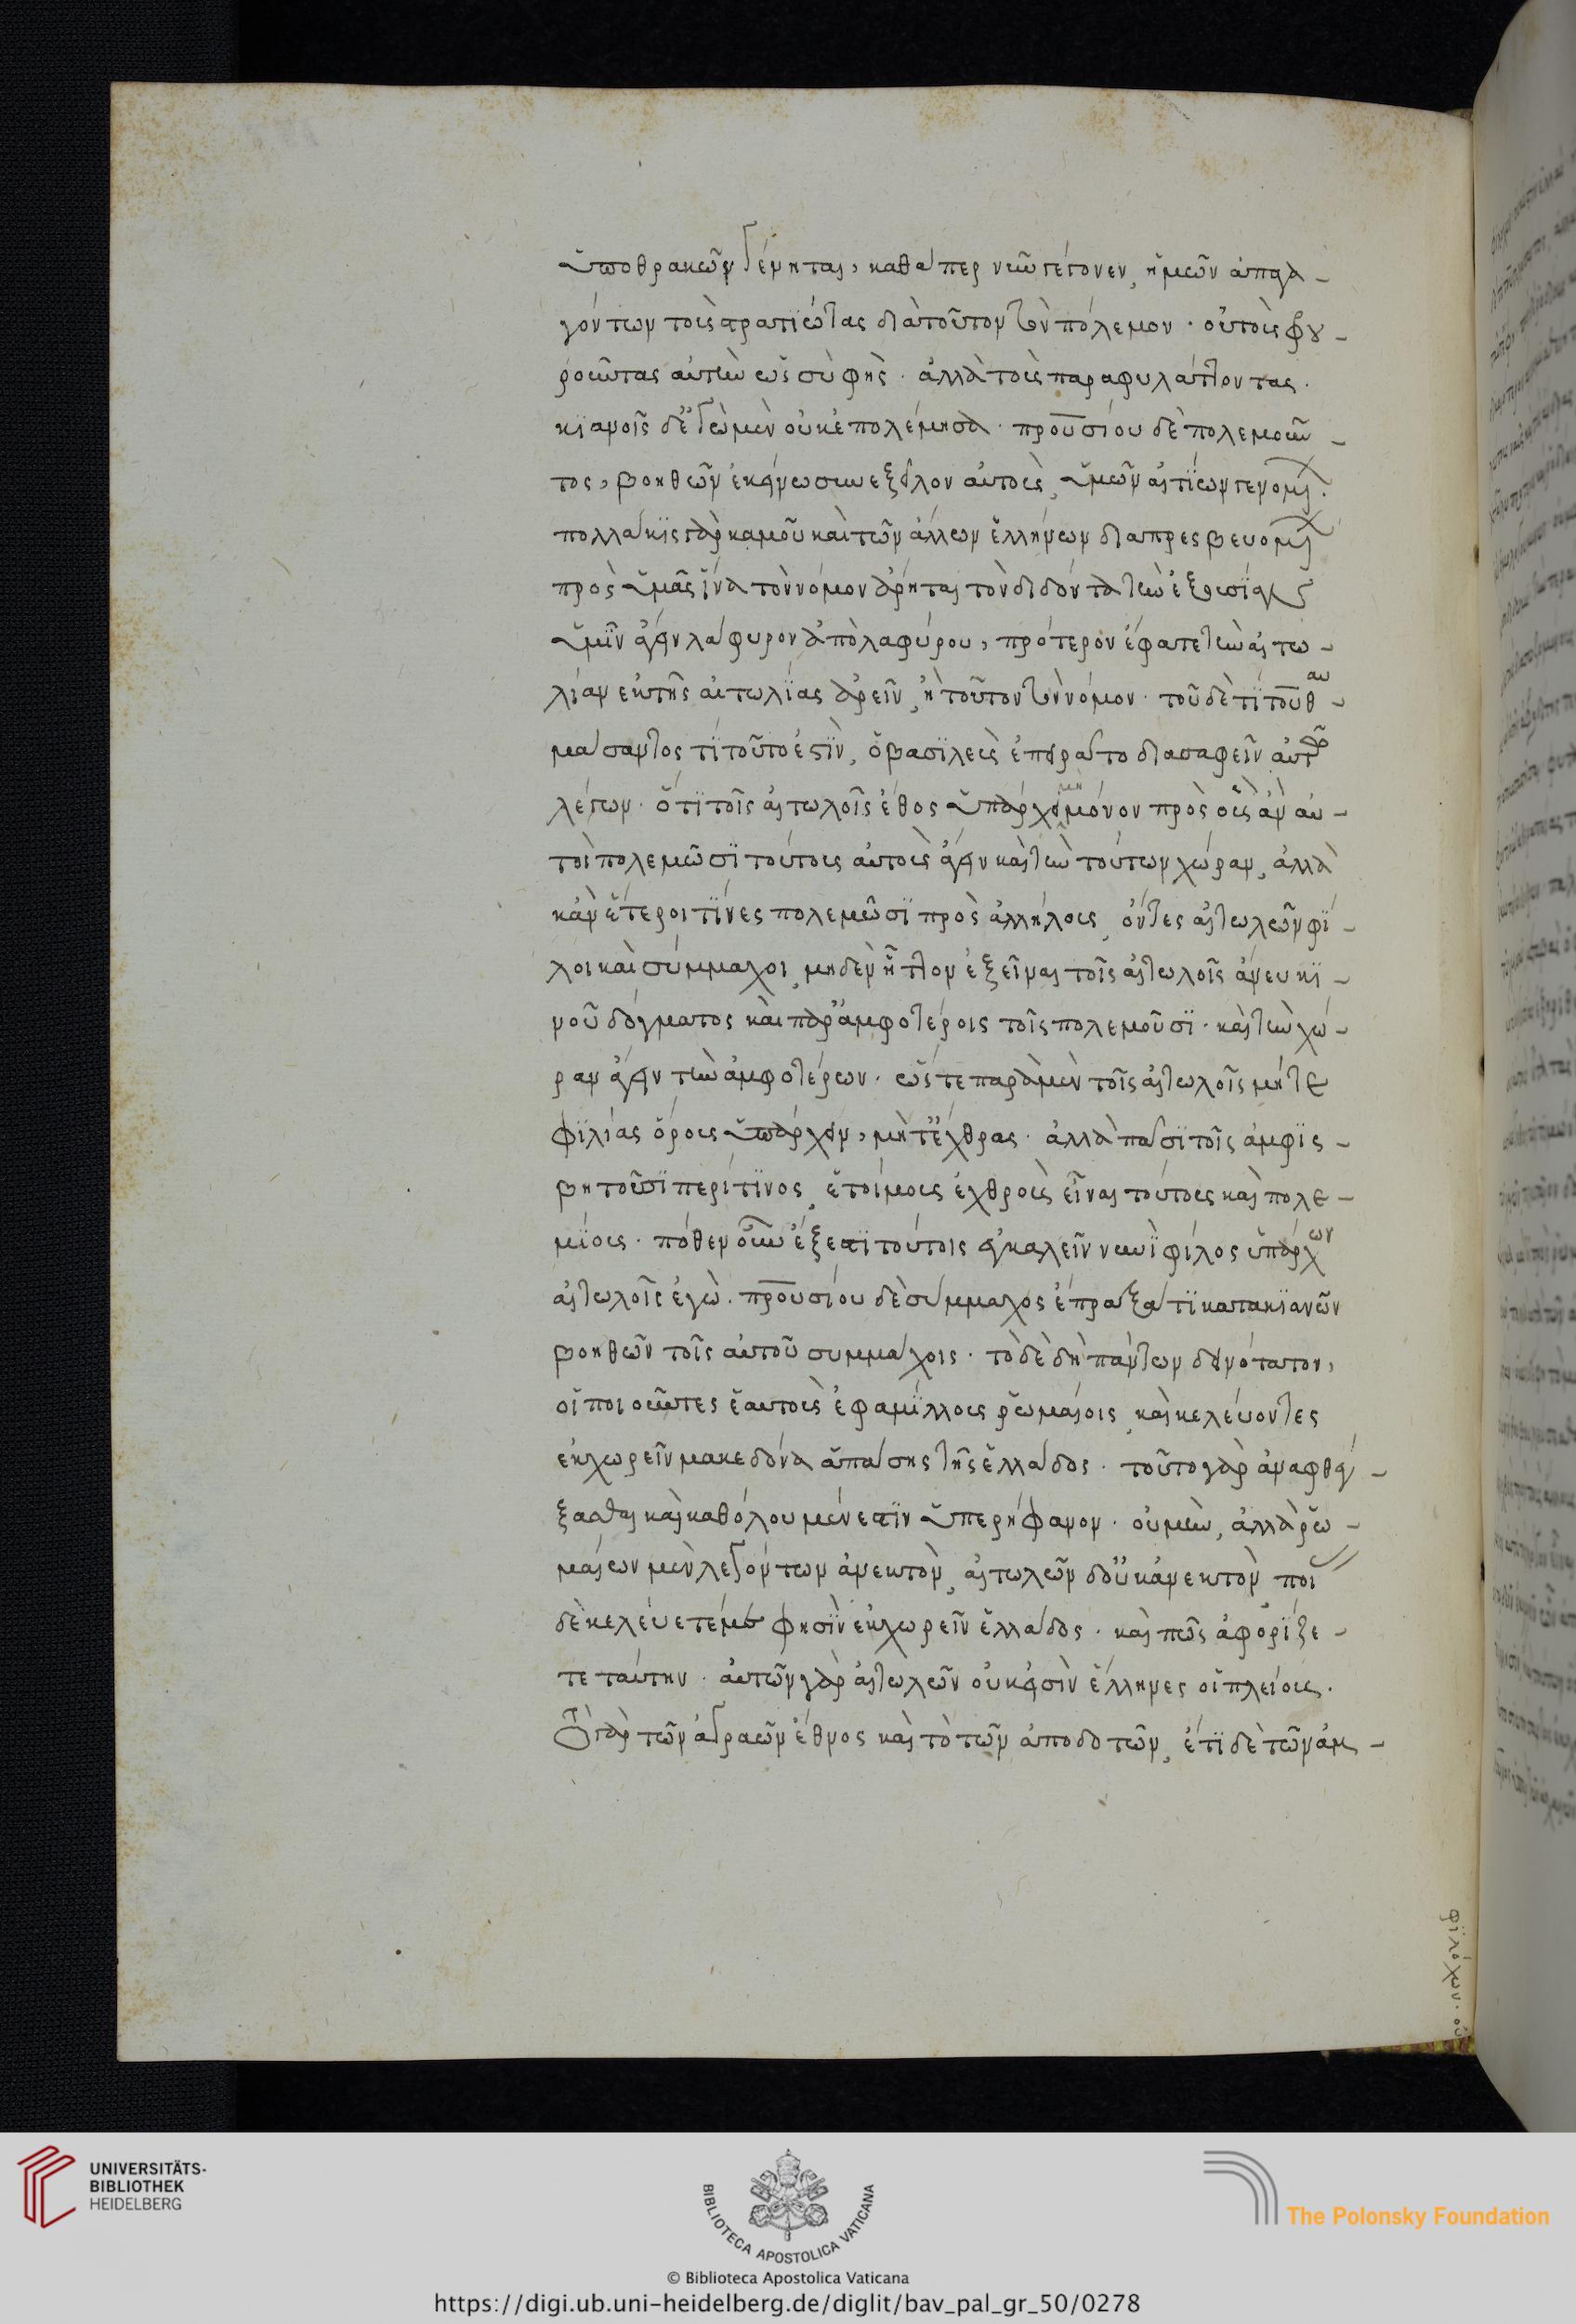 ὑπο θρακῶν γένηται, καθάπερ νῦν γέγονεν, ἡμῶν ἀπαγα-
γόντων τοὺς στρατιώτας διὰ τοῦτον τὸν πόλεμον· οὐ τοὺς φρου-
ροῦντας αὐτὴν ὡς σὺ φὴς· ἀλλὰ τοὺς παραφυλάττοντας.
κιανοῖς δ' ἐγὼ μὲν οὐκ ἐπολέμησα· προυσίου δὲ πολεμοῦν-
τος, βοηθῶν ἐκείνω συνεξεῖλον αὐτοὺς, ὑμῶν αἰτίων γενομένων.
πολλάκις γὰρ κἀμοῦ καὶ τῶν ἄλλων ἑλλήνων διαπρεσβευομένων
πρὸς ὑμᾶς ἵνα τὸν νόμον ἄρηται τὸν διδόντα τὴν ἐξουσίαν
ὑμῖν ἄγειν λάφυρον ἀπὸ λαφύρου, πρότερον ἔφατε τὴν αἰτω-
λίαν ἐκ τῆς αἰτωλίας ἀρεῖν, ἢ τοῦτον τὸν νόμον· τοῦ δὲ τίτου θαυ-
μάσαντος τί τοῦτό ἐστιν, ὁ βασιλεὺς ἐπειρᾶτο διασαφεῖν αὐτῶ
λέγων· ὅτι τοῖς αἰτωλοῖς ἔθος ὑπάρχει μὴ μόνον πρὸς οὓς ἂν αὐ-
τοὶ πολεμῶσι τούτους αὐτοὺς ἄγειν καὶ τὴν τούτων χώραν, ἀλλὰ
κἂν ἕτεροι τινες πολεμῶσι πρὸς ἀλλήλους, ὄντες αἰτωλῶν φί-
λοι καὶ σύμμαχοι, μηδὲν ἧττον ἐξεῖναι τοῖς αἰτωλοῖς ἄνευ κι-
νοῦ δόγματος καὶ παρ' ἀμφοτέροις τοῖς πολεμοῦσι· καὶ τὴν χώ-
ραν ἄγειν τὴν ἀμφοτέρων. ὥστε παρὰ μὲν τοῖς αἰτωλοῖς μήτε
φιλίας ὅρους ὑπάρχειν, μήτ' ἔχθρας· ἀλλὰ πᾶσι τοῖς ἀμφισ-
βητοῦσι περί τινος, ἑτοίμους ἐχθροὺς εἶναι τούτους καὶ πολε-
μίους· πόθεν οὖν ἔξεστι τούτοις ἐγκαλεῖν νυνὶ φίλος ὑπάρχων
αἰτωλοῖς ἐγὼ. προυσίου δὲ σύμμαχος ἔπραξά τι κατα κιανῶν
βοηθῶν τοῖς αὑτοῦ συμμάχοις· τὸ δὲ δὴ πάντων δεινότατον,
οἱ ποιοῦντες ἑαυτοὺς ἐφαμίλλους ῥωμαίοις, καὶ κελεύοντες
ἐκχωρεῖν μακεδόνα ἁπάσης τῆς ἑλλάδος· τοῦτο γὰρ ἀναφθέγ-
ξασθαι καὶ καθόλου μέν ἐστιν ὑπερήφανον. οὐ μὴν, ἀλλὰ ῥω-
μαίων μὲν λεγόντων ἀνεκτὸν, αἰτωλῶν δ' οὐκ ἀνεκτὸν ποίας
δὲ κελεύετέ με φησὶν ἐκχωρεῖν ἑλλάδος· καὶ πῶς ἀφορίζε-
τε ταύτην· αὐτῶν γὰρ αἰτωλῶν οὐκ εἰσὶν ἕλληνες οἱ πλείους.
Τὸ γὰρ τῶν ἀγραῶν ἔθνος καὶ τὸ τῶν ἀποδοτῶν, ἔτι δὲ τῶν ἀμ-
φιλόχων. οὐ
UNIVERSITÄTS-
BIBLIOTHEK
HEIDELBERG
BIBLIOTECA APOSTOLICA VATICANA
The Polonsky Foundation
© Biblioteca Apostolica Vaticana
https://digi.ub.uni-heidelberg.de/diglit/bav_pal_gr_50/0278